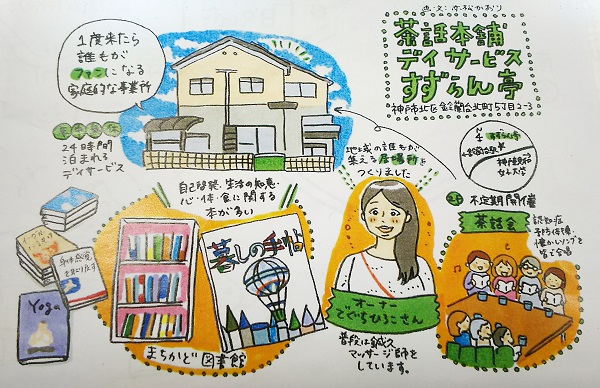 画・文:友松かおり
茶話本舗
デイサービス
すずらん亭
神戸市北区鈴蘭台北町5丁目2-3
1度来たら
誰もが
ファンになる
家庭的な事業所
年中無休
24時間
泊まれる
デイサービス
自己啓発・生活の知恵・
心・体・食に関する
本が多い
暮しの手帖
身体感覚
を取り戻す
Yoga
まちかど図書館
地域の誰もが
集える居場所を
つくりました
オーナー
でぐちひろこさん
普段は鍼灸
マッサージ師を
しています。
N
4
すずらん亭
鈴蘭台駅
神戸親和
女子大学
2F
不定期開催
茶話会
認知症
予防体操
懐かしソングを
皆で合唱